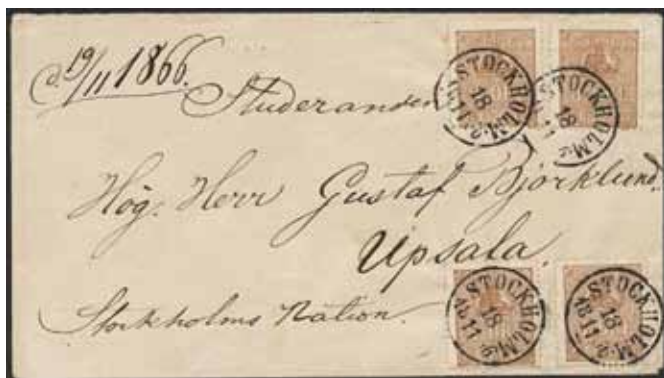 d. 19/11 1866.
Studeranden
Hög. Herr Gustaf Björklund.
Upsala.
Stockholms Nation.
STOCKHOLM
18
11
STOCKHOLM
18
11
STOCKHOLM
18
11
STOCKHOLM
18
11